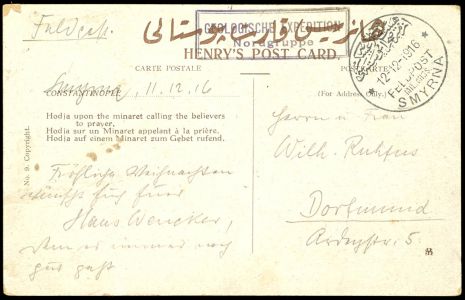 Feldpost.
هانريس قارت پوستالی
GEOLOGISCHE EXPEDITION
Nordgruppe
HENRY'S POST CARD.
CARTE POSTALE
POSTKARTE
CONSTANTINOPLE
Smyrna, 11.12.16
(For Address Only.)
Hodja upon the minaret calling the believers
to prayer.
Hodja sur un Minaret appelant à la prière.
Hodja auf einem Minaret zum Gebet rufend.
No. 9. Copyright.
Fröhliche Weihnachten
wünscht Euch Euer
Hans Wencker,
dem es immer noch
gut geht
12-12-1916
FELDPOST
MIL. MISS.
SMYRNA
Herrn u. Frau
Wilh. Ruhfus
Dortmund
Ardeystr. 5.